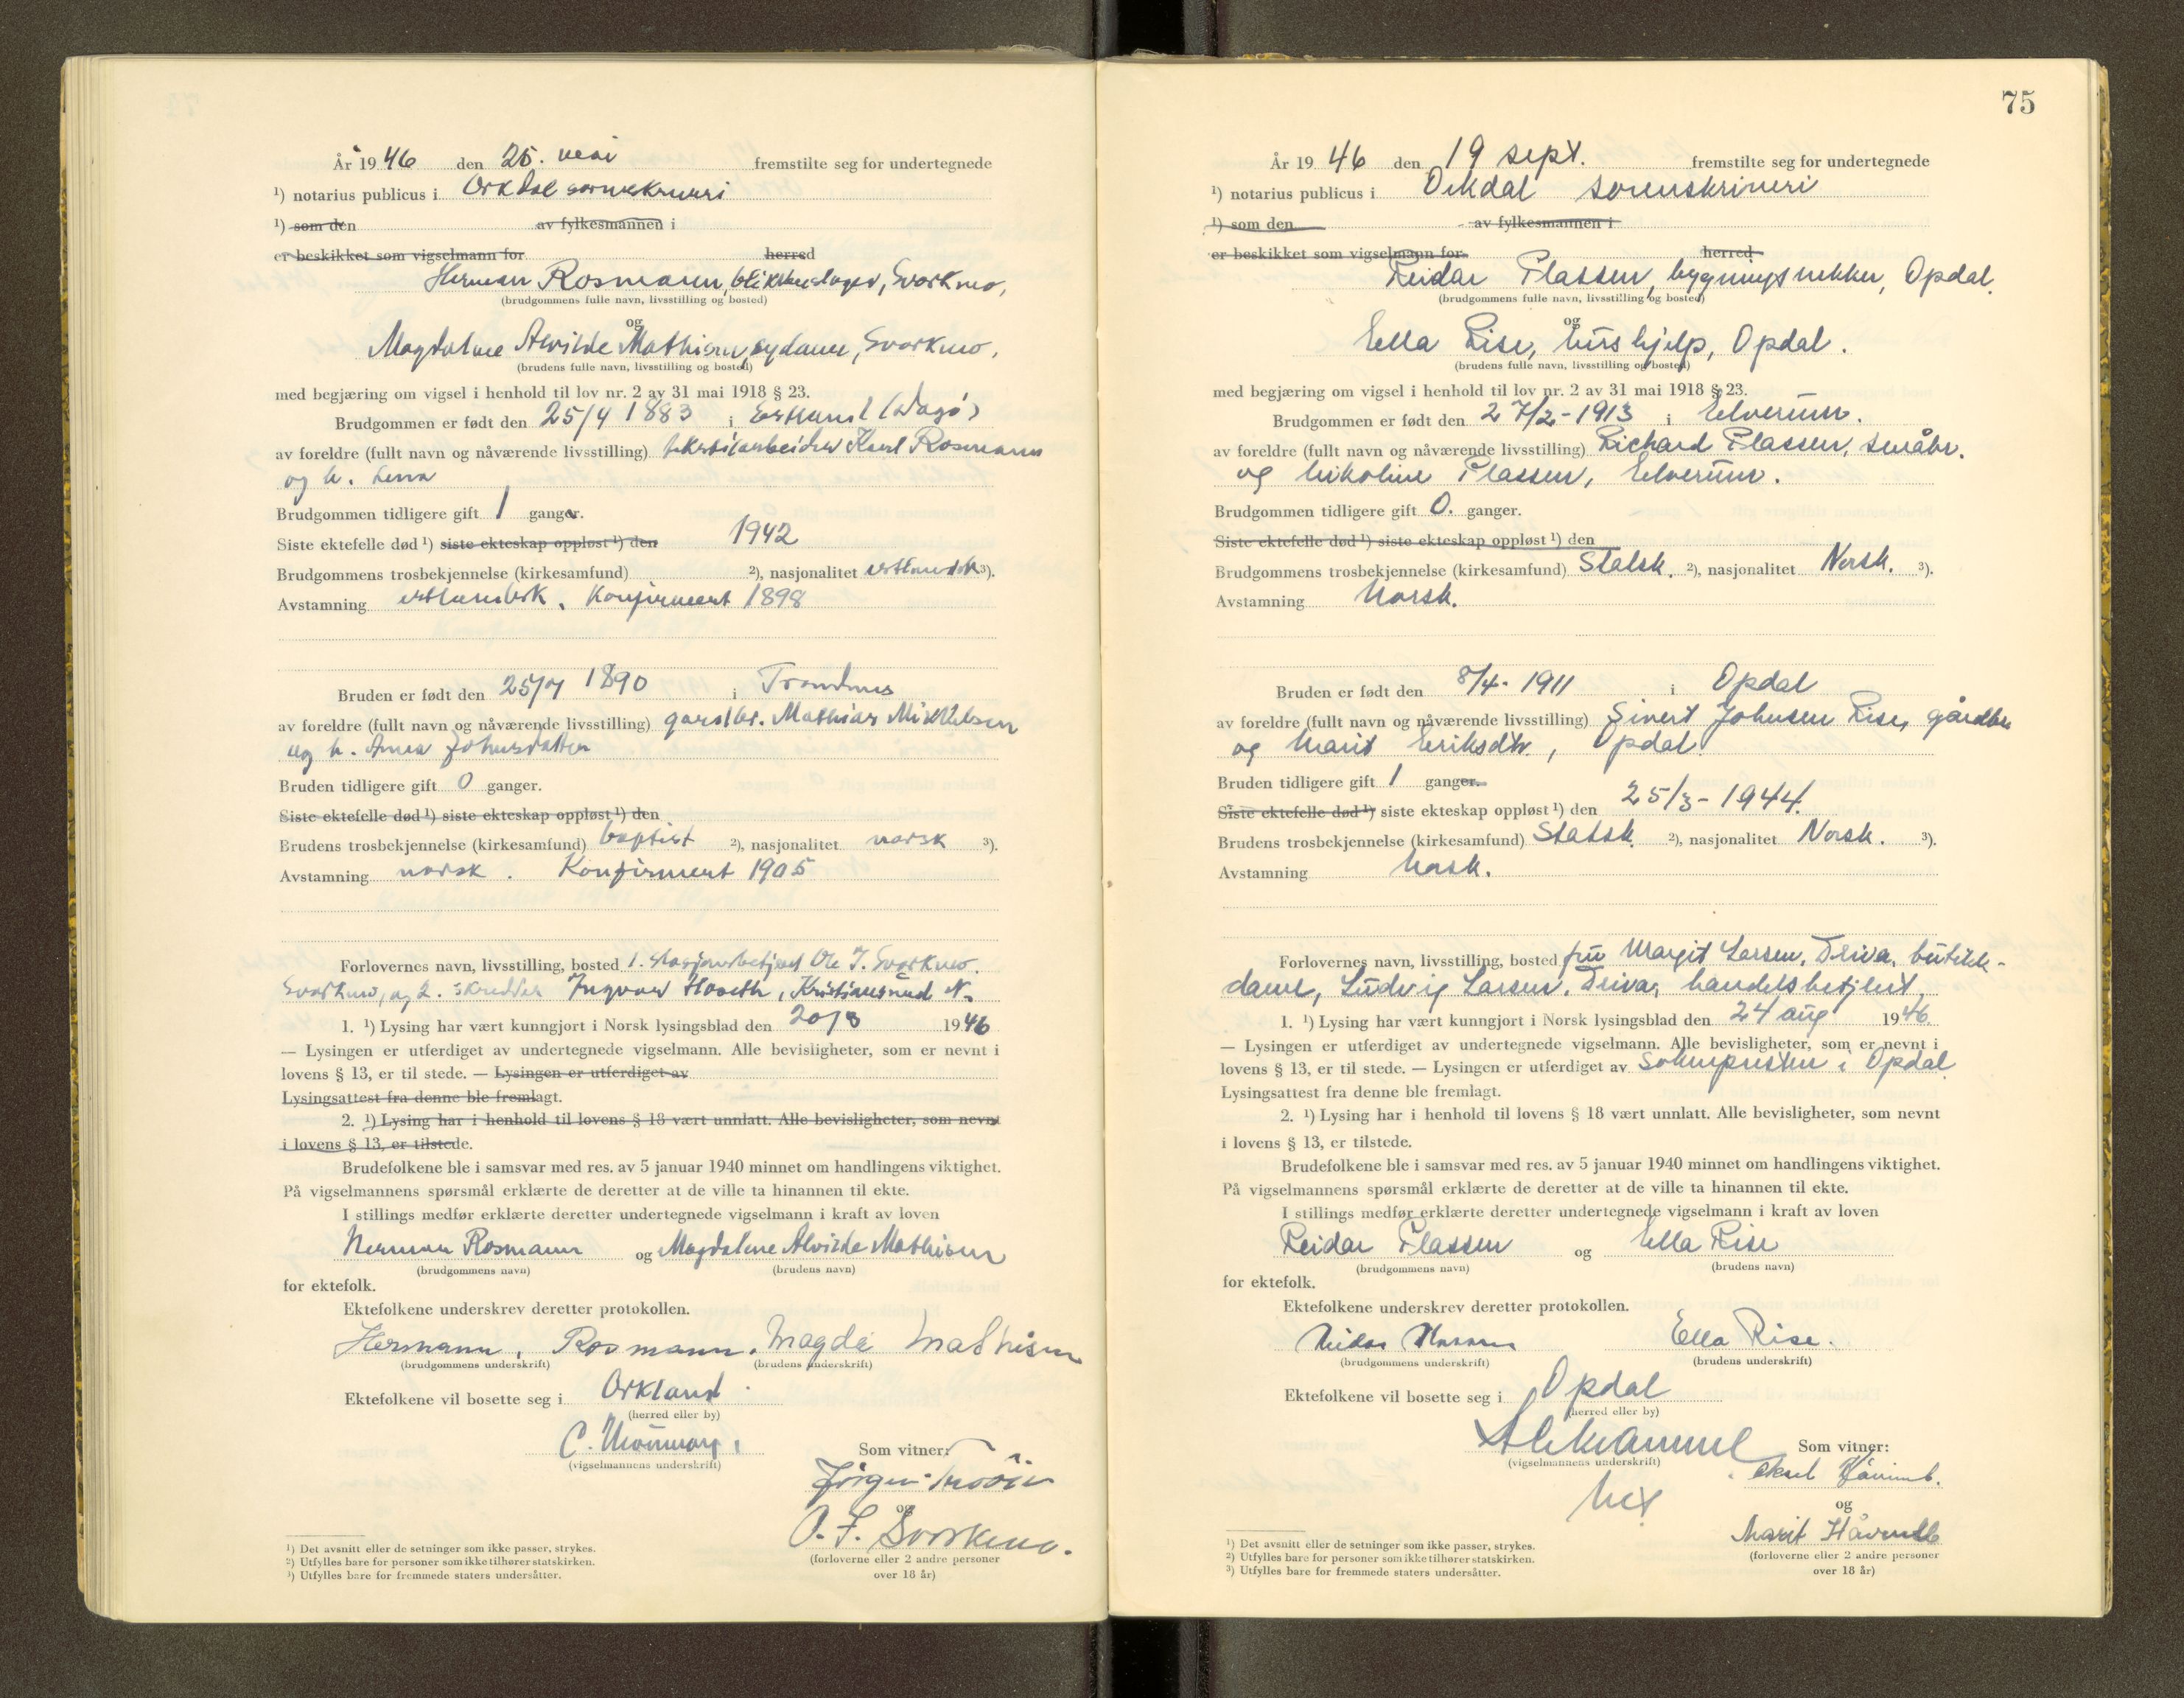 År 1946 den 25. mai fremstilte seg for undertegnede
¹) notarius publicus i Orkdal sorenskriveri
¹) som den av fylkesmannen i
er beskikket som vigselmann for herred
Herman Rosmann, blikkenslager, Svorkmo,
(brudgommens fulle navn, livsstilling og bosted)
og
Magdalene Alvilde Mathisen, sydame, Svorkmo,
(brudens fulle navn, livsstilling og bosted)
med begjæring om vigsel i henhold til lov nr. 2 av 31 mai 1918 § 23.
Brudgommen er født den 25/4 1883 i Estland (Dagö)
av foreldre (fullt navn og nåværende livsstilling) tekstilarbeider Karl Rosmann
og h. Lena
Brudgommen tidligere gift 1 ganger.
Siste ektefelle død ¹) siste ekteskap oppløst ¹) den 1942
Brudgommens trosbekjennelse (kirkesamfund) ²), nasjonalitet estlandsk ³).
Avstamning estlandsk. Konfirmert 1898
Bruden er født den 25/7 1890 i Trondnes
av foreldre (fullt navn og nåværende livsstilling) gardbr. Mathias Mikkelsen
og h. Anna Johnsdatter
Bruden tidligere gift 0 ganger.
Siste ektefelle død ¹) siste ekteskap oppløst ¹) den
Brudens trosbekjennelse (kirkesamfund) baptist ²), nasjonalitet norsk ³).
Avstamning norsk. Konfirmert 1905
Forlovernes navn, livsstilling, bosted 1. stasjonsbetjent Ole J. Svorkmo.
Svorkmo, og 2. skredder Ingvar Hoseth, Kristiansund N.
1. ¹) Lysing har vært kunngjort i Norsk lysingsblad den 20/3 1946
— Lysingen er utferdiget av undertegnede vigselmann. Alle bevisligheter, som er nevnt i
lovens § 13, er til stede. — Lysingen er utferdiget av
Lysingsattest fra denne ble fremlagt.
2. ¹) Lysing har i henhold til lovens § 18 vært unnlatt. Alle bevisligheter, som nevnt
i lovens § 13, er tilstede.
Brudefolkene ble i samsvar med res. av 5 januar 1940 minnet om handlingens viktighet.
På vigselmannens spørsmål erklærte de deretter at de ville ta hinannen til ekte.
I stillings medfør erklærte deretter undertegnede vigselmann i kraft av loven
Herman Rosmann og Magdalene Alvilde Mathisen
(brudgommens navn) (brudens navn)
for ektefolk.
Ektefolkene underskrev deretter protokollen.
Hermann, Rosmann. Magda Mathisen
(brudgommens underskrift) (brudens underskrift)
Ektefolkene vil bosette seg i Orkland.
(herred eller by)
C.
(vigselmannens underskrift)
Som vitner:
Jørgen
og
O. J. Svorkmo.
(forloverne eller 2 andre personer
over 18 år)
¹) Det avsnitt eller de setninger som ikke passer, strykes.
²) Utfylles bare for personer som ikke tilhører statskirken.
³) Utfylles bare for fremmede staters undersåtter.
75
År 1946 den 19 sept. fremstilte seg for undertegnede
¹) notarius publicus i Orkdal sorenskriveri
¹) som den av fylkesmannen i
er beskikket som vigselmann for herred
Reidar Plassen, bygningssnekker, Opdal.
(brudgommens fulle navn, livsstilling og bosted)
og
Ella Rise, hushjelp, Opdal.
(brudens fulle navn, livsstilling og bosted)
med begjæring om vigsel i henhold til lov nr. 2 av 31 mai 1918 § 23.
Brudgommen er født den 27/2-1913 i Elverum.
av foreldre (fullt navn og nåværende livsstilling) Richard Plassen, småbr.
og Nikoline Plassen, Elverum.
Brudgommen tidligere gift 0. ganger.
Siste ektefelle død ¹) siste ekteskap oppløst ¹) den
Brudgommens trosbekjennelse (kirkesamfund) Statsk. ²), nasjonalitet Norsk. ³).
Avstamning Norsk.
Bruden er født den 8/4-1911 i Opdal
av foreldre (fullt navn og nåværende livsstilling) Sivert Johnsen Rise, gårdbr.
og Marit Eriksdtr., Opdal
Bruden tidligere gift 1 ganger.
Siste ektefelle død ¹) siste ekteskap oppløst ¹) den 25/3-1944.
Brudens trosbekjennelse (kirkesamfund) Statsk. ²), nasjonalitet Norsk. ³).
Avstamning Norsk.
Forlovernes navn, livsstilling, bosted fru Margit Larsen, Driva, butikk-
dame, Ludvig Larsen, Driva, handelsbetjent,
1. ¹) Lysing har vært kunngjort i Norsk lysingsblad den 24 aug 1946.
— Lysingen er utferdiget av undertegnede vigselmann. Alle bevisligheter, som er nevnt i
lovens § 13, er til stede. — Lysingen er utferdiget av Soknepresten i Opdal
Lysingsattest fra denne ble fremlagt.
2. ¹) Lysing har i henhold til lovens § 18 vært unnlatt. Alle bevisligheter, som nevnt
i lovens § 13, er tilstede.
Brudefolkene ble i samsvar med res. av 5 januar 1940 minnet om handlingens viktighet.
På vigselmannens spørsmål erklærte de deretter at de ville ta hinannen til ekte.
I stillings medfør erklærte deretter undertegnede vigselmann i kraft av loven
Reidar Plassen og Ella Rise
(brudgommens navn) (brudens navn)
for ektefolk.
Ektefolkene underskrev deretter protokollen.
Reidar Plassen Ella Rise.
(brudgommens underskrift) (brudens underskrift)
Ektefolkene vil bosette seg i Opdal
(herred eller by)
(vigselmannens underskrift)
Som vitner:
og
Marit
(forloverne eller 2 andre personer
over 18 år)
¹) Det avsnitt eller de setninger som ikke passer, strykes.
²) Utfylles bare for personer som ikke tilhører statskirken.
³) Utfylles bare for fremmede staters undersåtter.